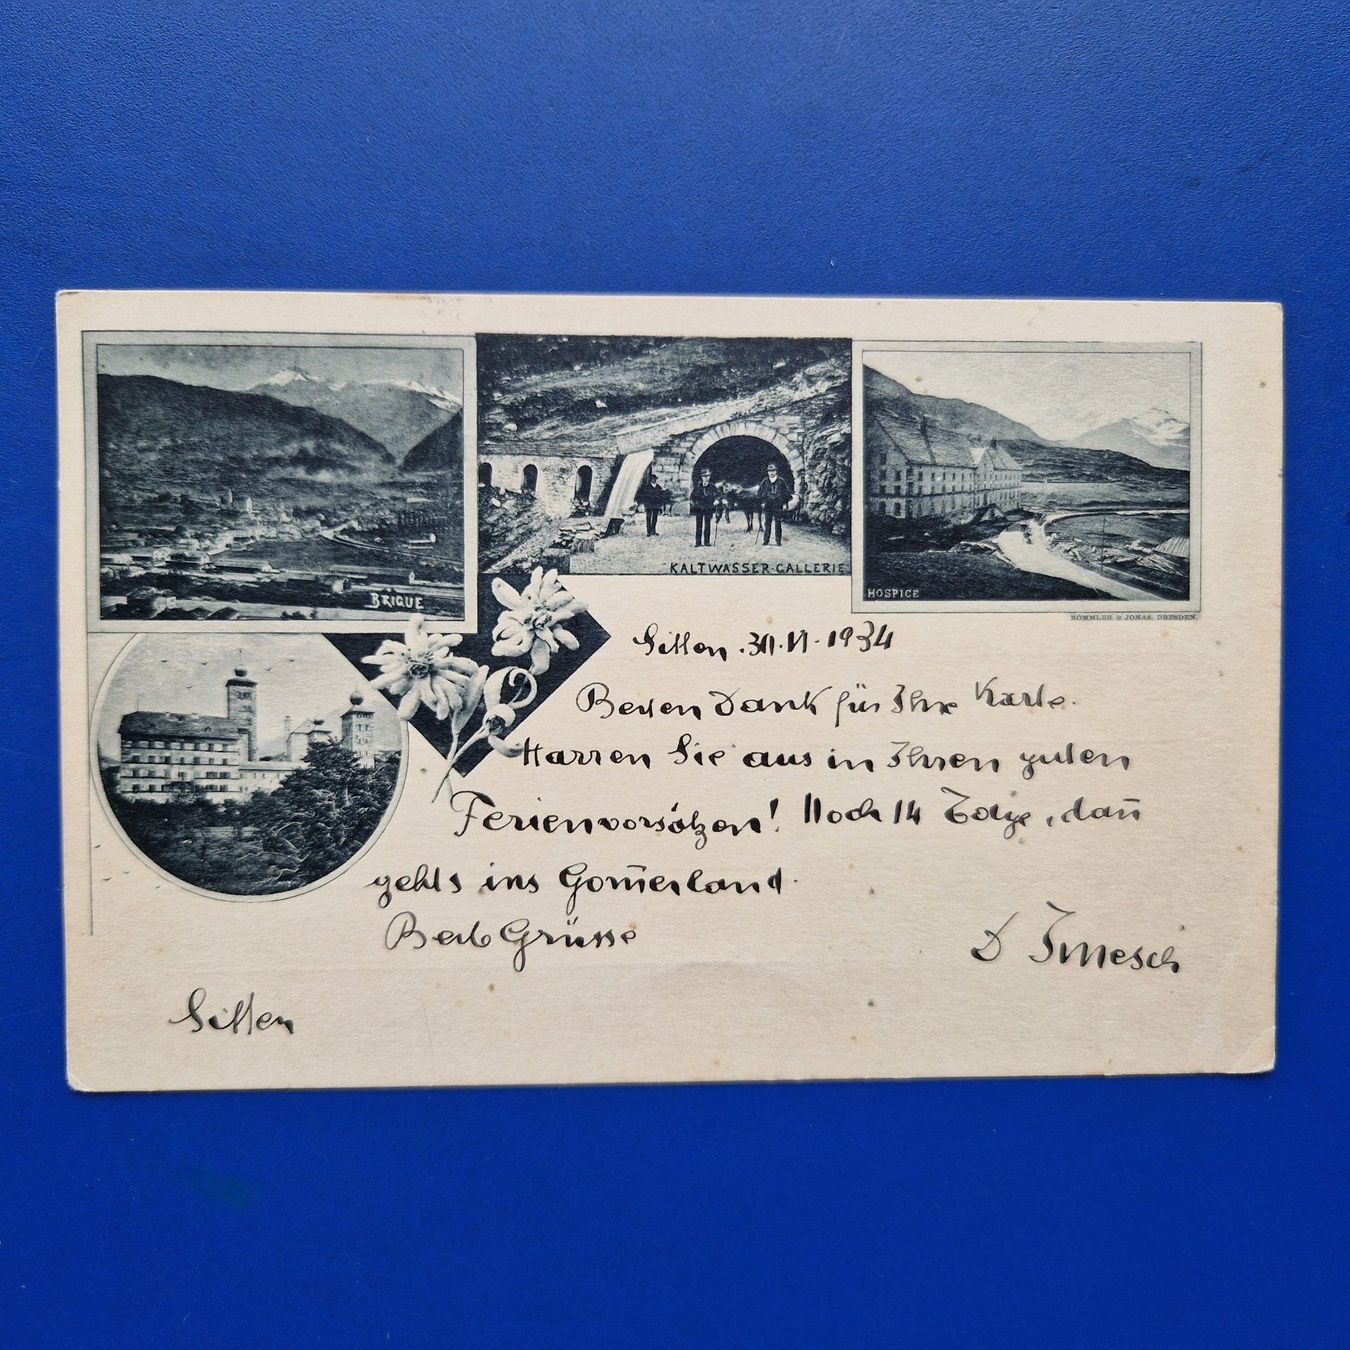 BRIGUE
KALTWASSER-GALLERIE
HOSPICE
RÖMMLER & JONAS, DRESDEN.
Sitten . 30. VI. 1934
Besten Dank für Ihre Karte.
Harren Sie aus in Ihren guten
Ferienvorsätzen! Noch 14 Tage, dan̄
gehts ins Gom̄erland.
Beste Grüsse
D Imesch
Sitten